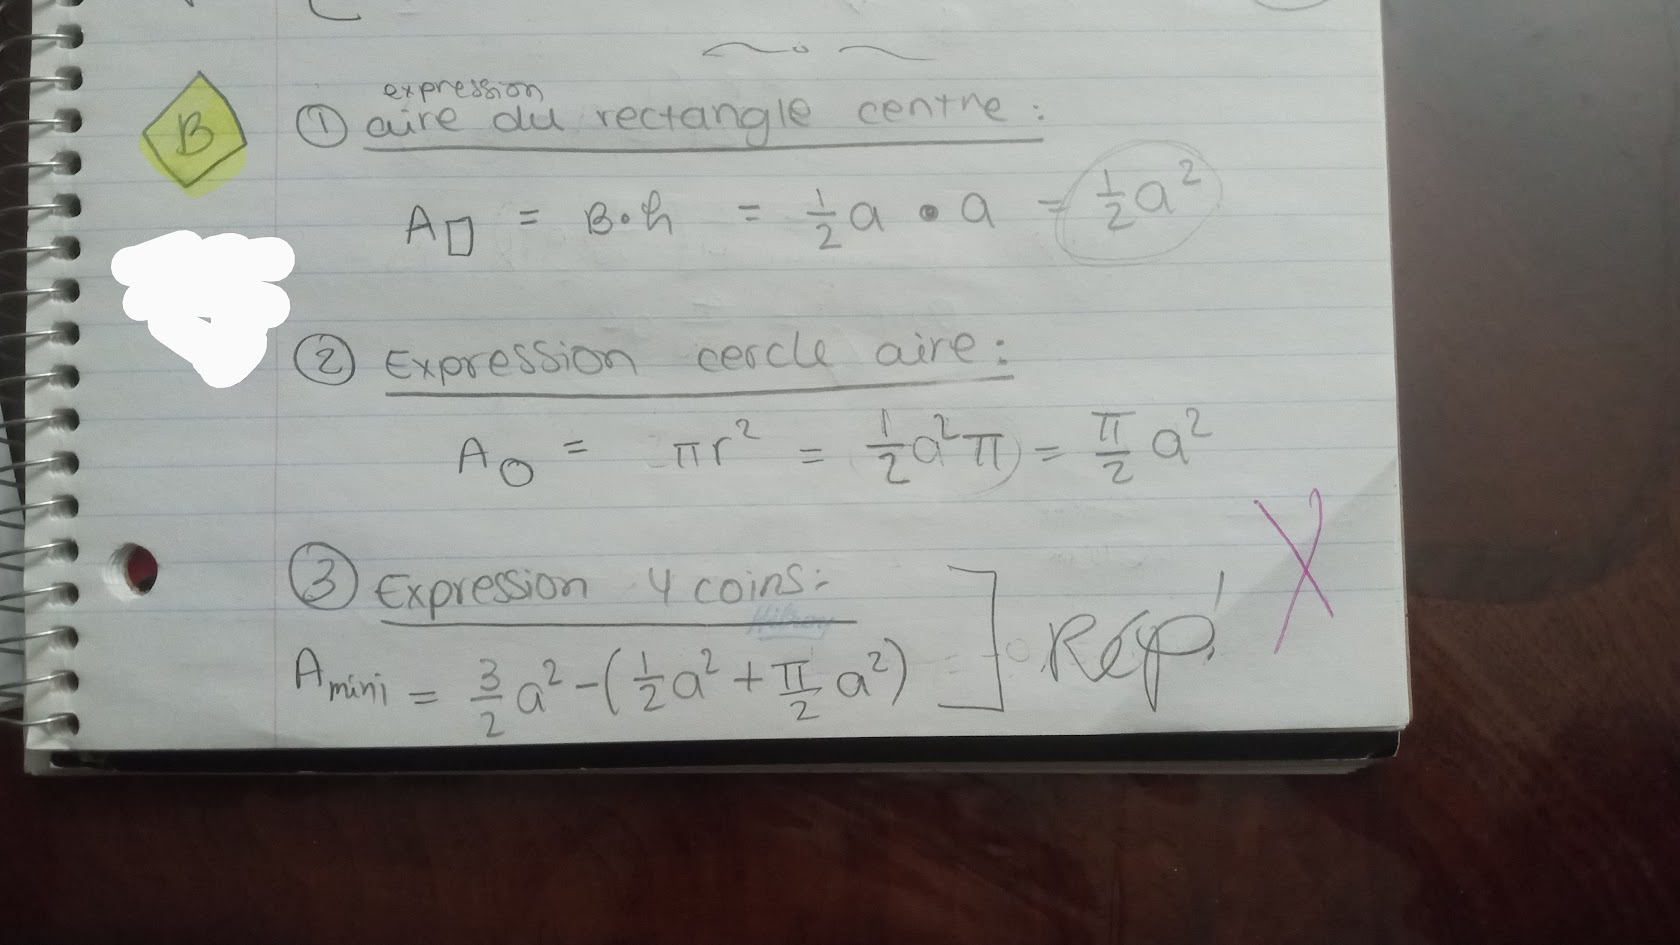 B
① expression
aire du rectangle centre :
A▯ = B•h = 1/2 a • a = 1/2 a²
② Expression cercle aire :
A○ = πr² = 1/2 a² π = π/2 a²
③ Expression 4 coins :
A mini = 3/2 a² - (1/2 a² + π/2 a²) ] Rép!
X